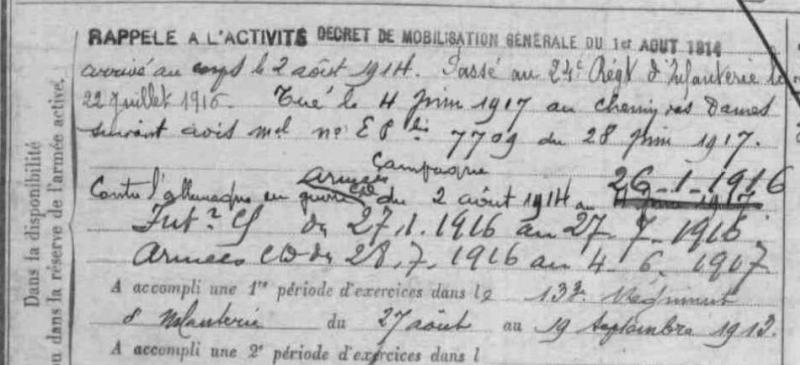 RAPPELE A L'ACTIVITE DECRET DE MOBILISATION GENERALE DU 1er AOUT 1914
arrivé au corps le 2 août 1914. Passé au 24e Régt d'Infanterie le
22 juillet 1916. Tué le 4 juin 1917 au chemin des Dames
suivant avis mel no 7709 du 28 juin 1917.
Campagne
Contre l'allemagne en guerre armées CD du 2 août 1914 au 4 juin 1917 26-1-1916
Intre CS du 27.1.1916 au 27-7-1916.
Armées CD du 28.7.1916 au 4-6-1917
A accompli une 1re période d'exercices dans le 13e Régiment
d'Infanterie du 27 août au 19 septembre 1912.
A accompli une 2e période d'exercices dans l
Dans la disponibilité
ou dans la réserve de l'armée active.